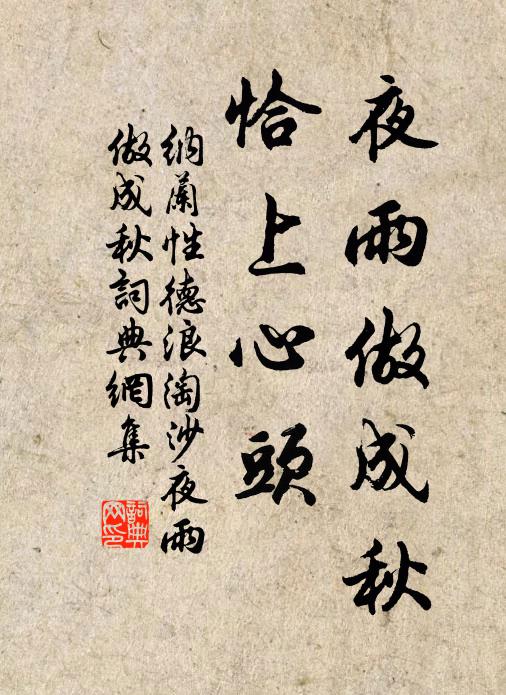 夜雨做成秋
恰上心頭
納蘭性德浪淘沙夜雨
做成秋詞典網集
詞典
网印